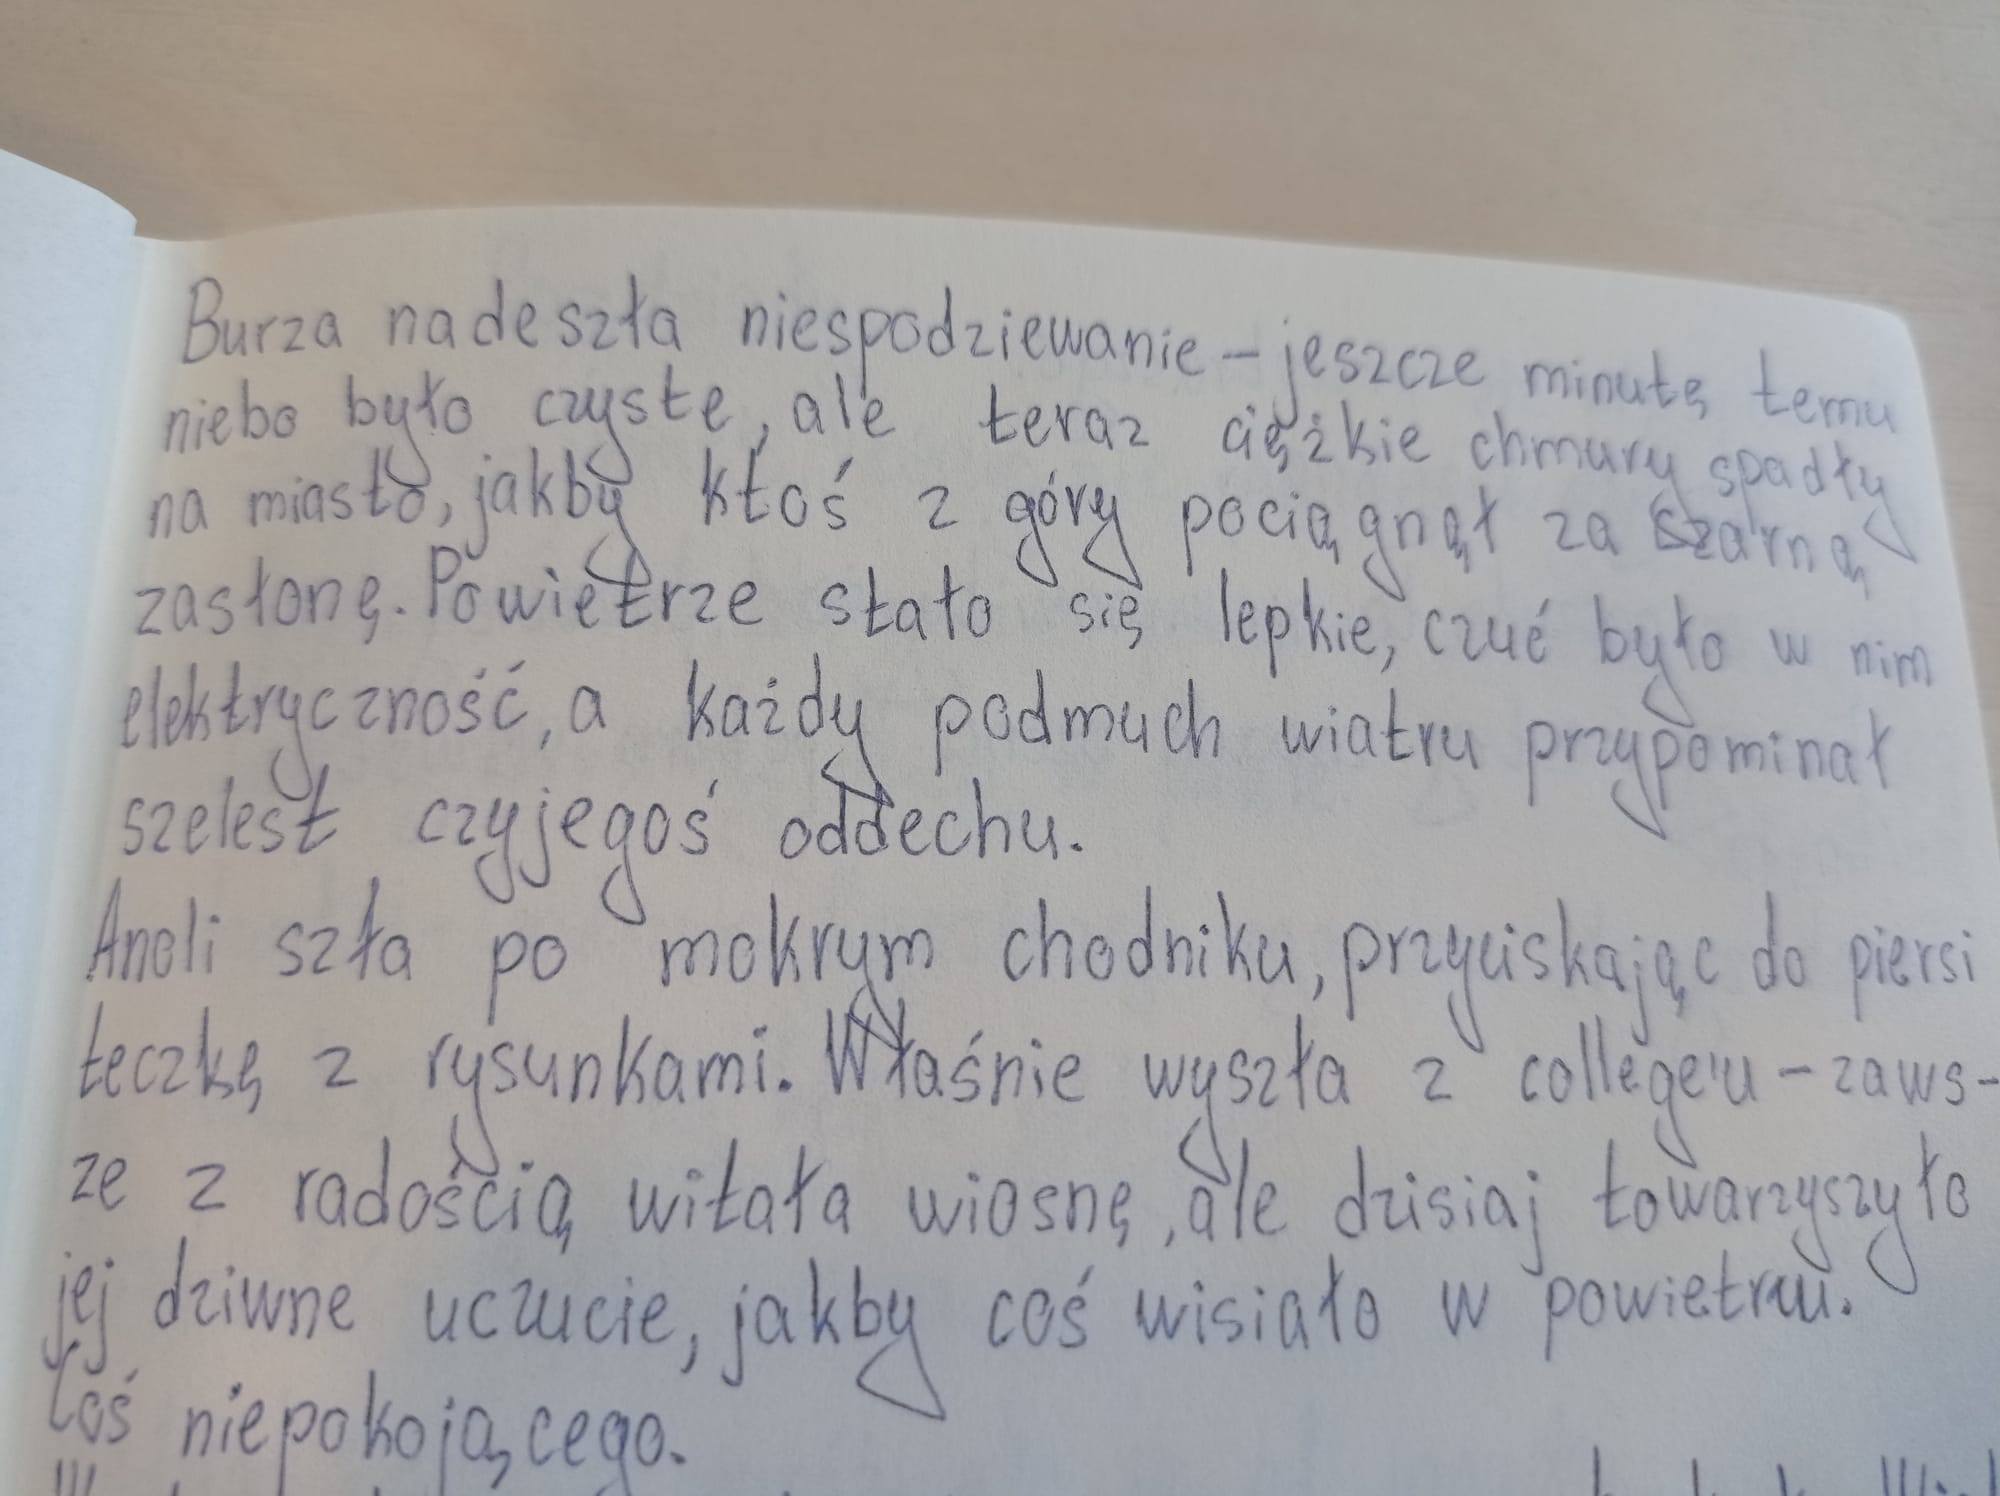 Burza nadeszła niespodziewanie – jeszcze minutę temu
niebo było czyste, ale teraz ciężkie chmury spadły
na miasto, jakby ktoś z góry pociągnął za szarną
zasłonę. Powietrze stało się lepkie, czuć było w nim
elektryczność, a każdy podmuch wiatru przypominał
szelest czyjegoś oddechu.
Anoli szła po mokrym chodniku, przyciskając do piersi
teczkę z rysunkami. Właśnie wyszła z college'u – zaws-
ze z radością witała wiosnę, ale dzisiaj towarzyszyło
jej dziwne uczucie, jakby coś wisiało w powietrzu.
Coś niepokojącego.